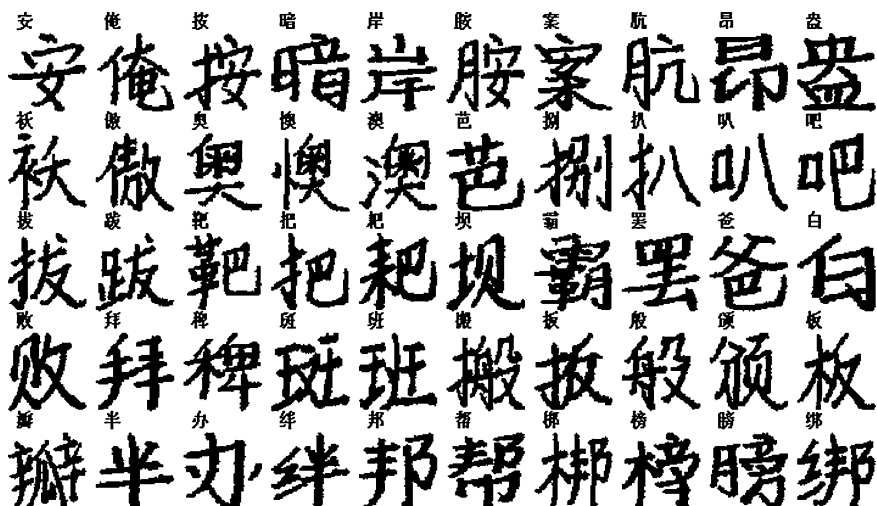 安 俺 按 暗 岸 胺 案 肮 昂 盎
安 俺 按 暗 岸 胺 案 肮 昂 盎
袄 傲 奥 懊 澳 芭 捌 扒 叭 吧
袄 傲 奥 懊 澳 芭 捌 扒 叭 吧
拔 跋 靶 把 耙 坝 霸 罢 爸 白
拔 跋 靶 把 耙 坝 霸 罢 爸 白
败 拜 稗 斑 班 搬 扳 般 颁 板
败 拜 稗 斑 班 搬 扳 般 颁 板
瓣 半 办 绊 邦 帮 梆 榜 膀 绑
瓣 半 办 绊 邦 帮 梆 榜 膀 绑